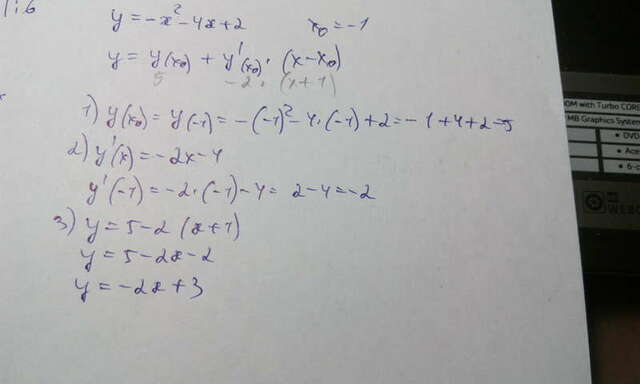 1.6
y = -x² - 4x + 2    x₀ = -1
y = y(x₀) + y'(x₀) · (x - x₀)
5    -2 · (x + 1)
1) y(x₀) = y(-1) = -(-1)² - 4 · (-1) + 2 = -1 + 4 + 2 = 5
2) y'(x) = -2x - 4
y'(-1) = -2 · (-1) - 4 = 2 - 4 = -2
3) y = 5 - 2 (x + 1)
y = 5 - 2x - 2
y = -2x + 3
OM with Turbo CORE
MB Graphics System
• DVD
• Ace
• 6-c
WEBC